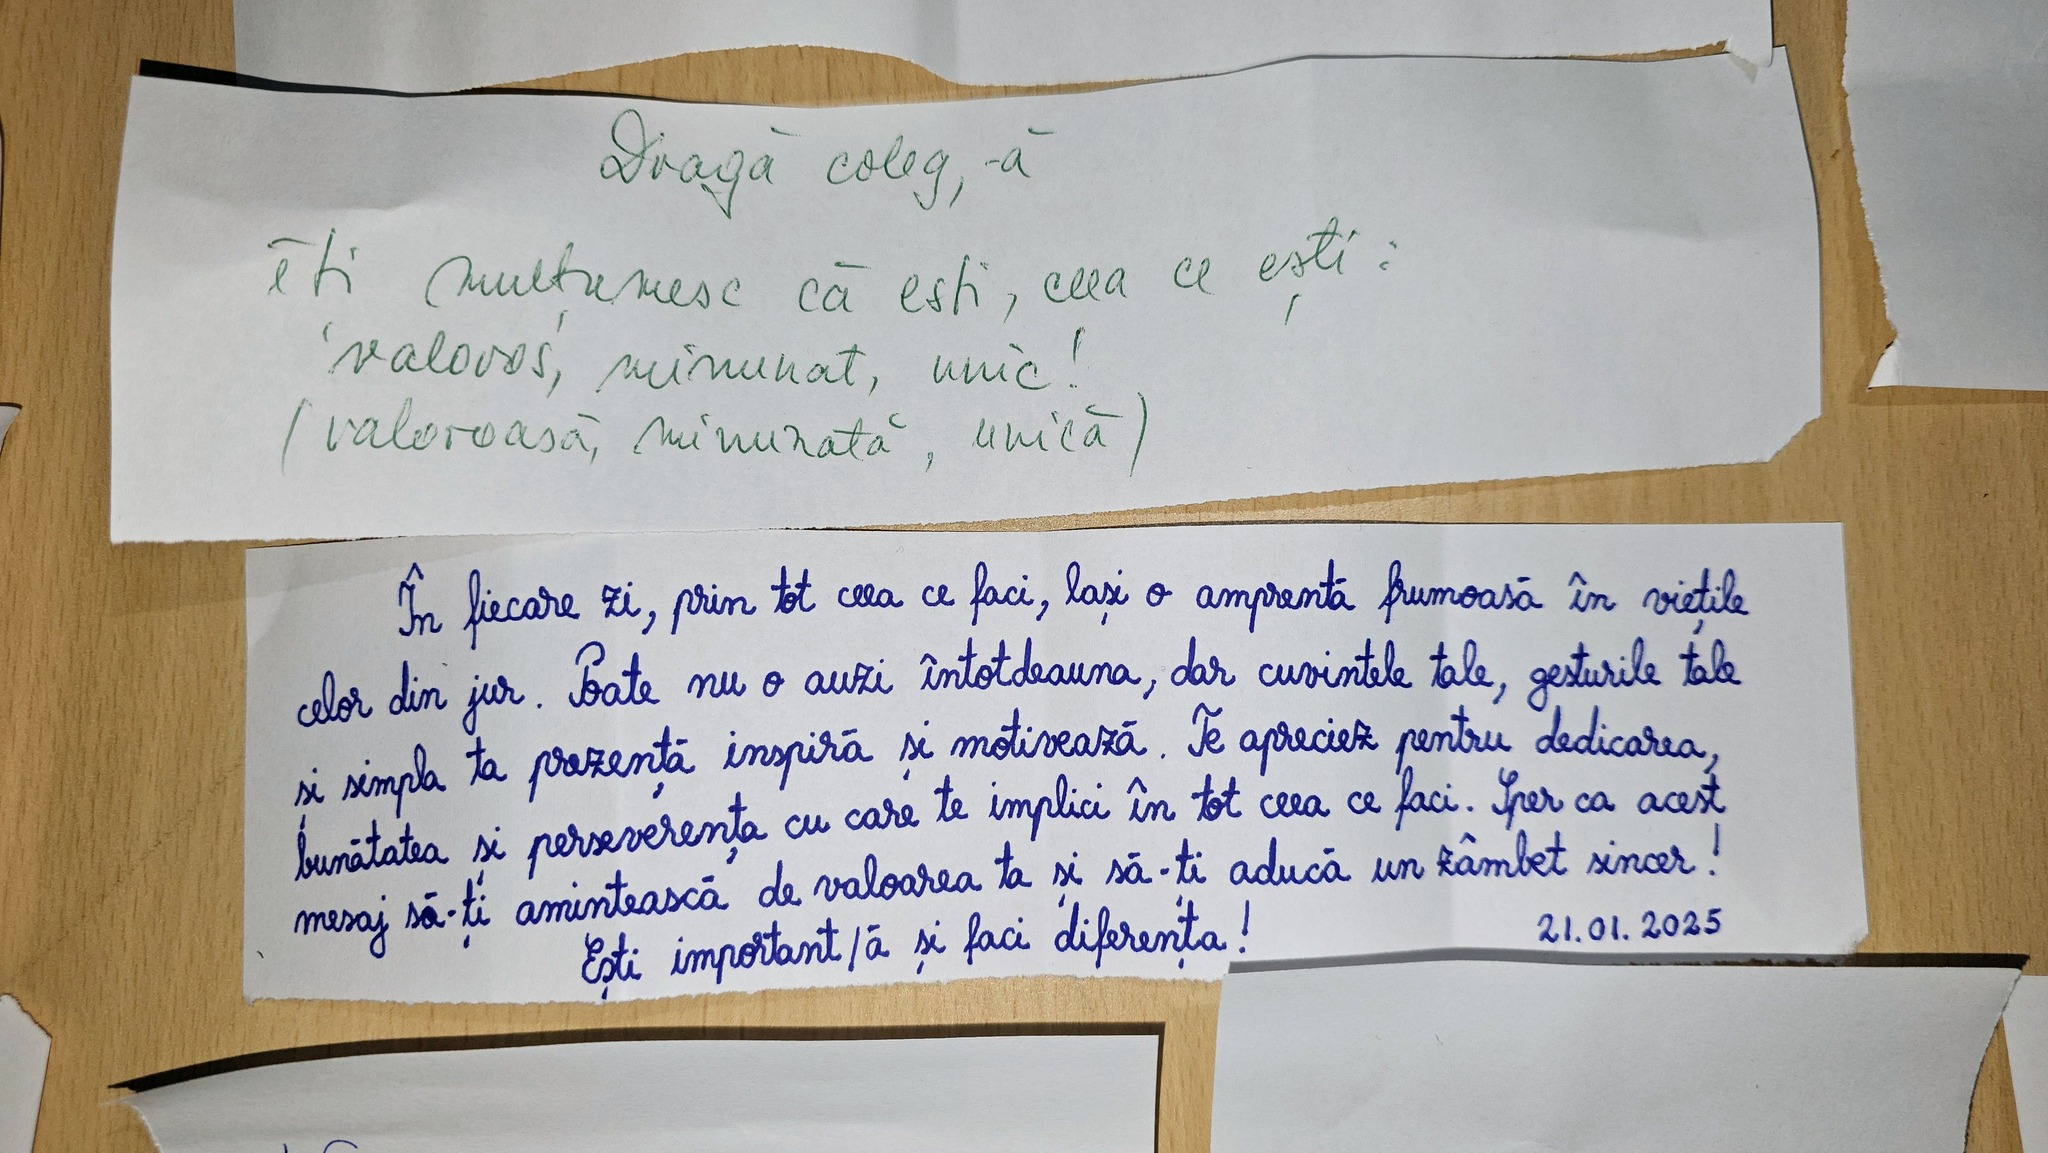 Dragă coleg,-ă
îți mulțumesc că ești, ceea ce ești:
valoros, minunat, unic!
(valoroasă, minunată, unică)
În fiecare zi, prin tot ceea ce faci, lași o amprentă frumoasă în viețile
celor din jur. Poate nu o auzi întotdeauna, dar cuvintele tale, gesturile tale
și simpla ta prezență inspiră și motivează. Te apreciez pentru dedicarea,
bunătatea și perseverența cu care te implici în tot ceea ce faci. Sper ca acest
mesaj să-ți amintească de valoarea ta și să-ți aducă un zâmbet sincer!
Ești important/ă și faci diferența!
21.01.2025